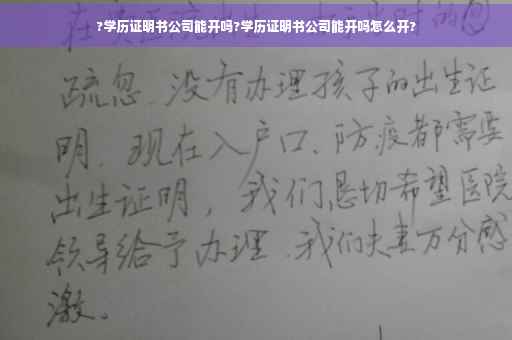 ?学历证明书公司能开吗?学历证明书公司能开吗怎么开?
疏忽、没有办理孩子的出生证
明、现在入户口、防疫都需要
出生证明，我们恳切希望医院
领导给予办理、我们夫妻万分感
激。